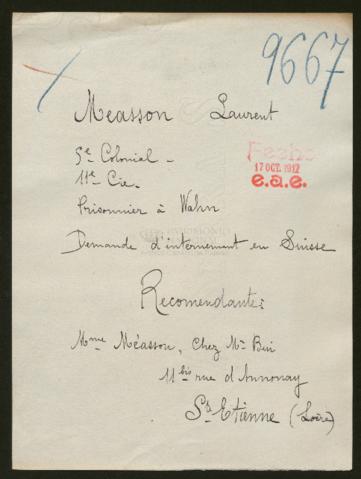 9667
Measson Laurent
5e Colonial -
11e Cie.
Fecha
17 OCT. 1917
e.a.e.
Prisonnier à Wahn
PATRIMONIO
Demande d'internement en Suisse
Recomendante:
Mme Méasson, Chez Mr
11 bis rue d'Annonay
St Etienne (Loire)